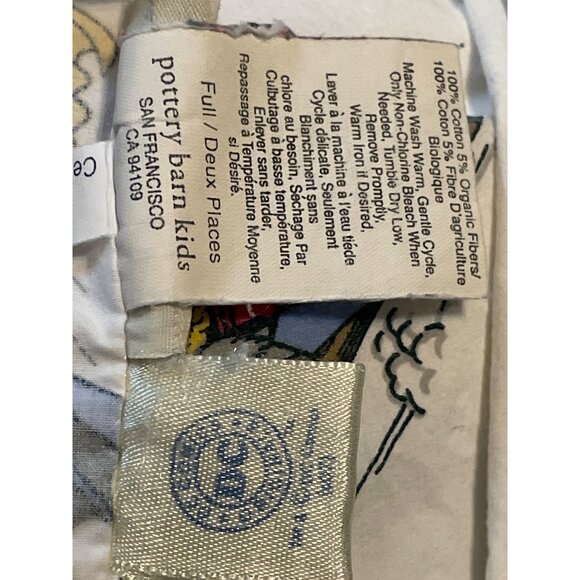 100% Cotton 5% Organic Fibers/
100% Coton 5% Fibre D'agriculture
Biologique
Machine Wash Warm, Gentle Cycle,
Only Non-Chlorine Bleach When
Needed, Tumble Dry Low,
Remove Promptly,
Warm Iron if Desired.
Laver à la machine à l'eau tiède
Cycle délicate, Seulement
Blanchiment sans
chlore au besoin, Séchage Par
Culbutage à basse température,
Enlever sans tarder,
Repassage à Température Moyenne
si Désiré.
Full / Deux Places
pottery barn kids
SAN FRANCISCO
CA 94109